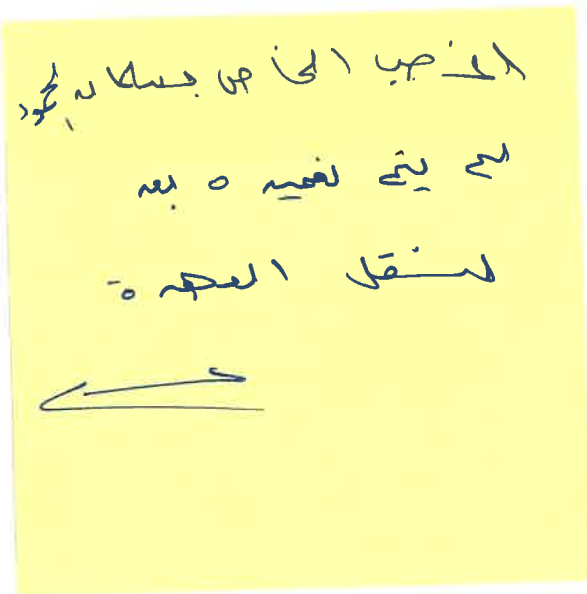 المنصب الخاص بسلطان محمود
لم يتم تعيينه بعد
لنقل العهدة